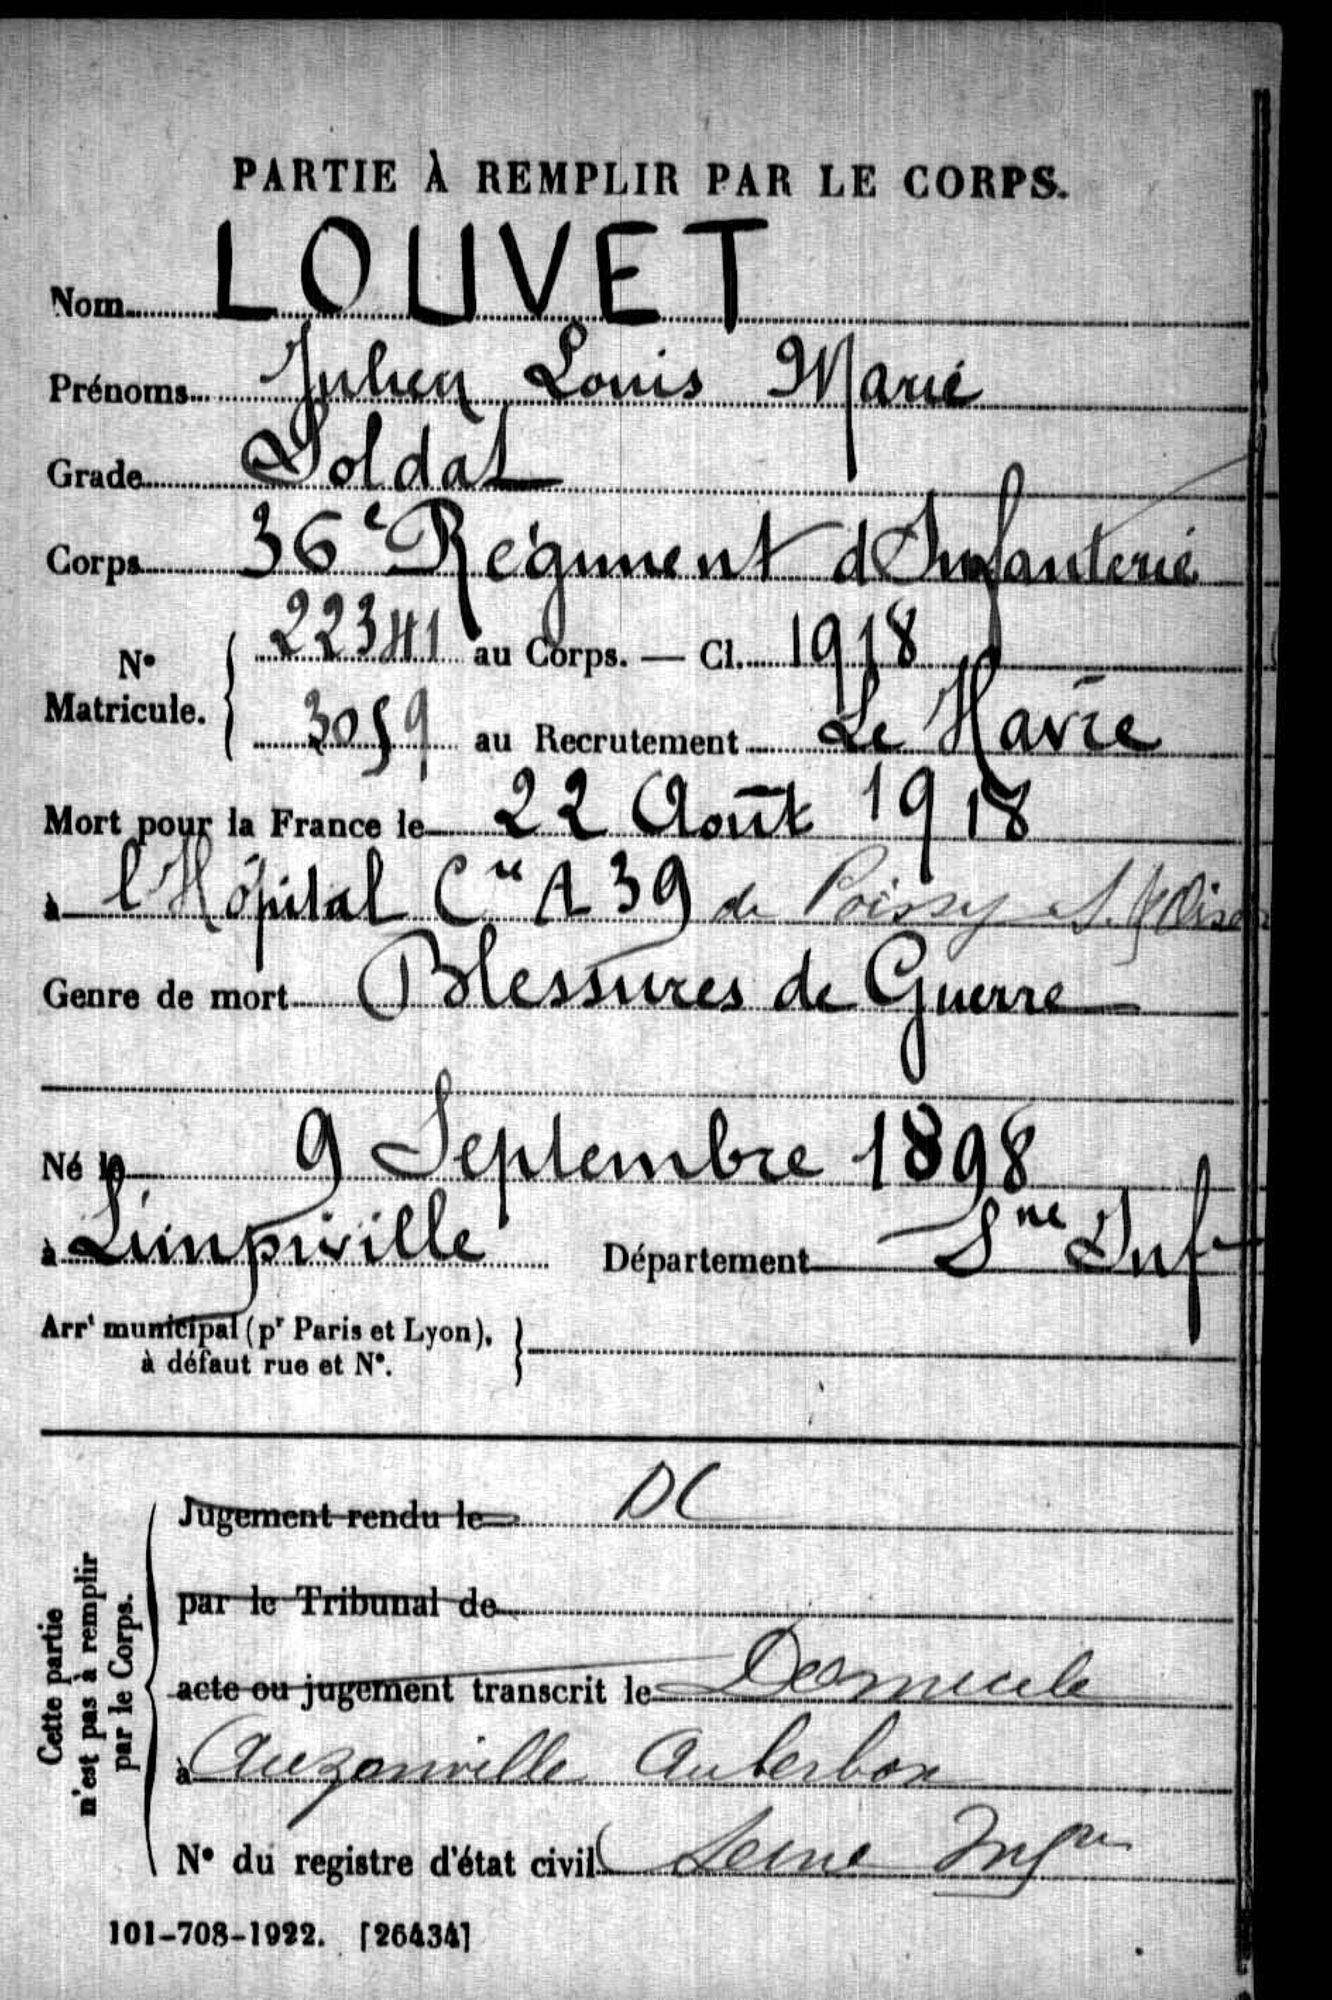 PARTIE À REMPLIR PAR LE CORPS.
Nom LOUVET
Prénoms Julien Louis Marie
Grade Soldat
Corps 36e Régiment d'Infanterie
N° Matricule. 22341 au Corps. — Cl. 1918
3059 au Recrutement Le Havre
Mort pour la France le 22 Août 1918
à l'Hôpital Cre A 39 de Poissy S. & Oise
Genre de mort Blessures de Guerre
Né le 9 Septembre 1898
à Limpiville Département Sne Inf
Arrt municipal (pr Paris et Lyon),
à défaut rue et N°.
Cette partie n'est pas à remplir par le Corps.
Jugement rendu le DC
par le Tribunal de
acte ou jugement transcrit le Domicile
à Auzouville Auberbosc
N° du registre d'état civil Seine Infre
101-708-1922. [26434]